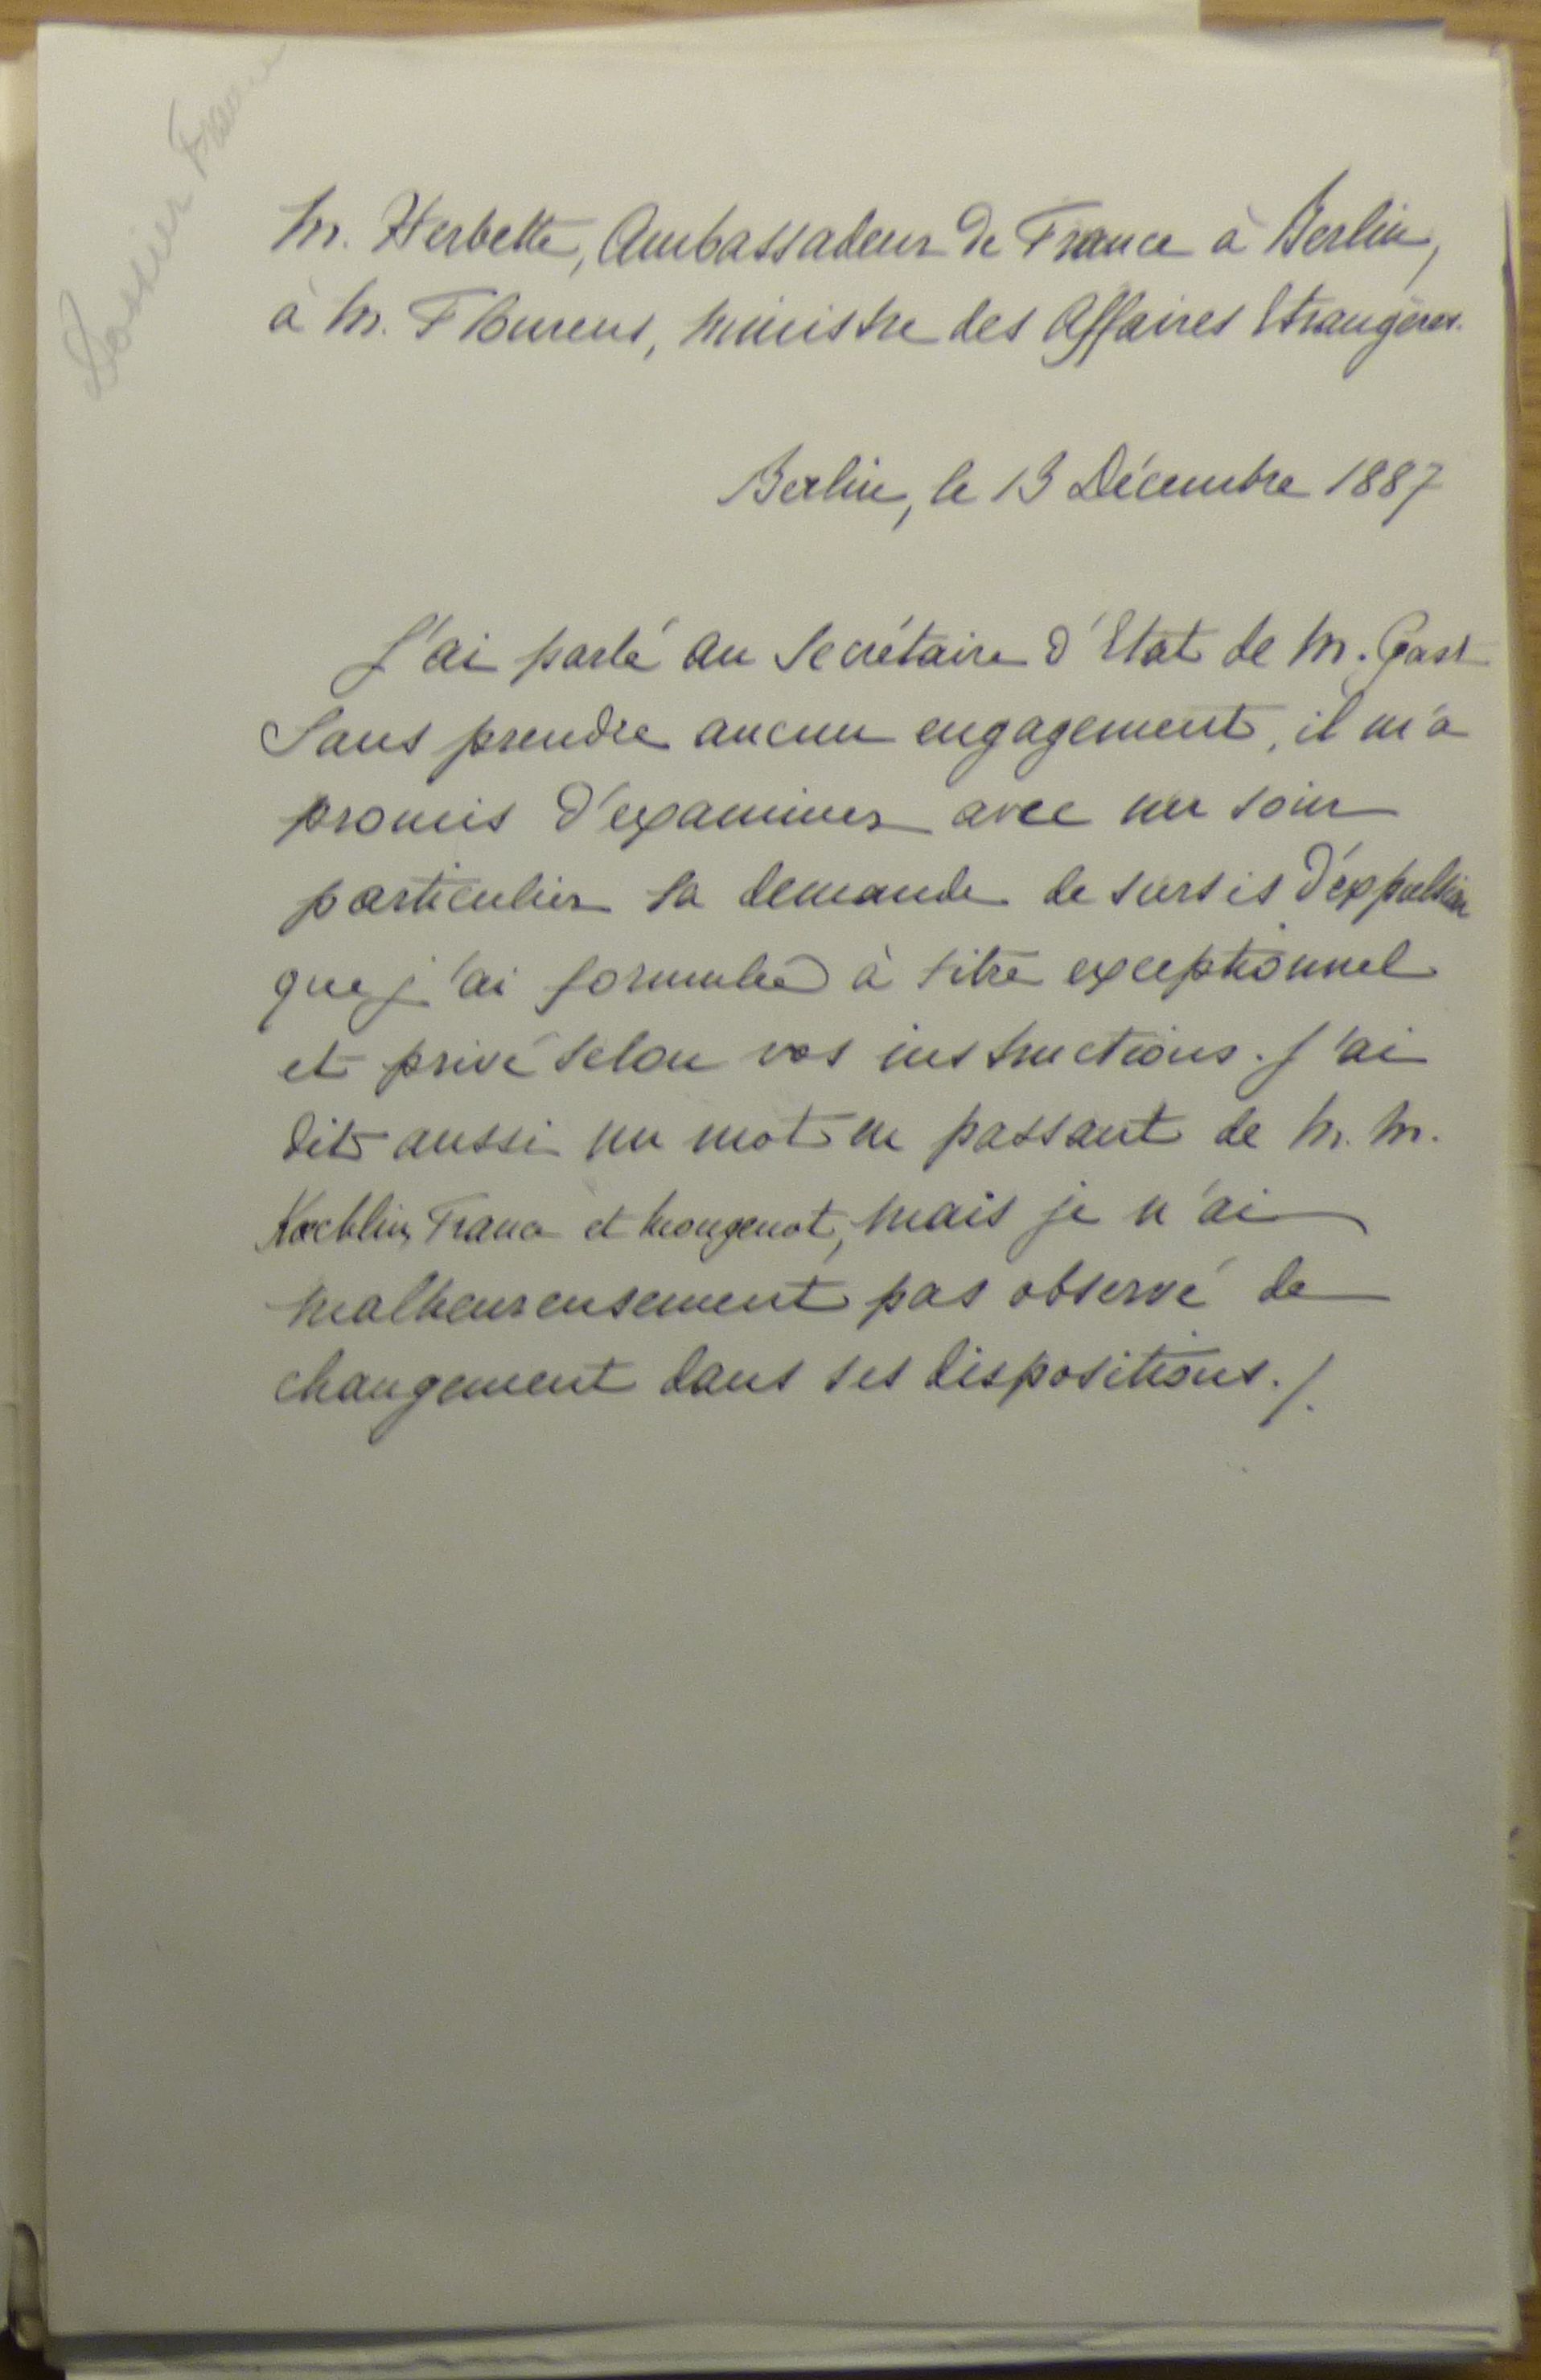 Dossier France
M. Herbette, Ambassadeur de France à Berlin,
à M. Flourens, Ministre des Affaires Etrangères.
Berlin, le 13 Décembre 1887
J'ai parlé au Secrétaire d'Etat de M. Gast
Sans prendre aucun engagement, il m'a
promis d'examiner avec un soin
particulier la demande de sursis d'expulsion
que j'ai formulée à titre exceptionnel
et privé selon vos instructions. J'ai
dit aussi un mot en passant de M. M.
Koechlin, Franc et Mougenot, mais je n'ai
malheureusement pas observé de
changement dans ses dispositions./.